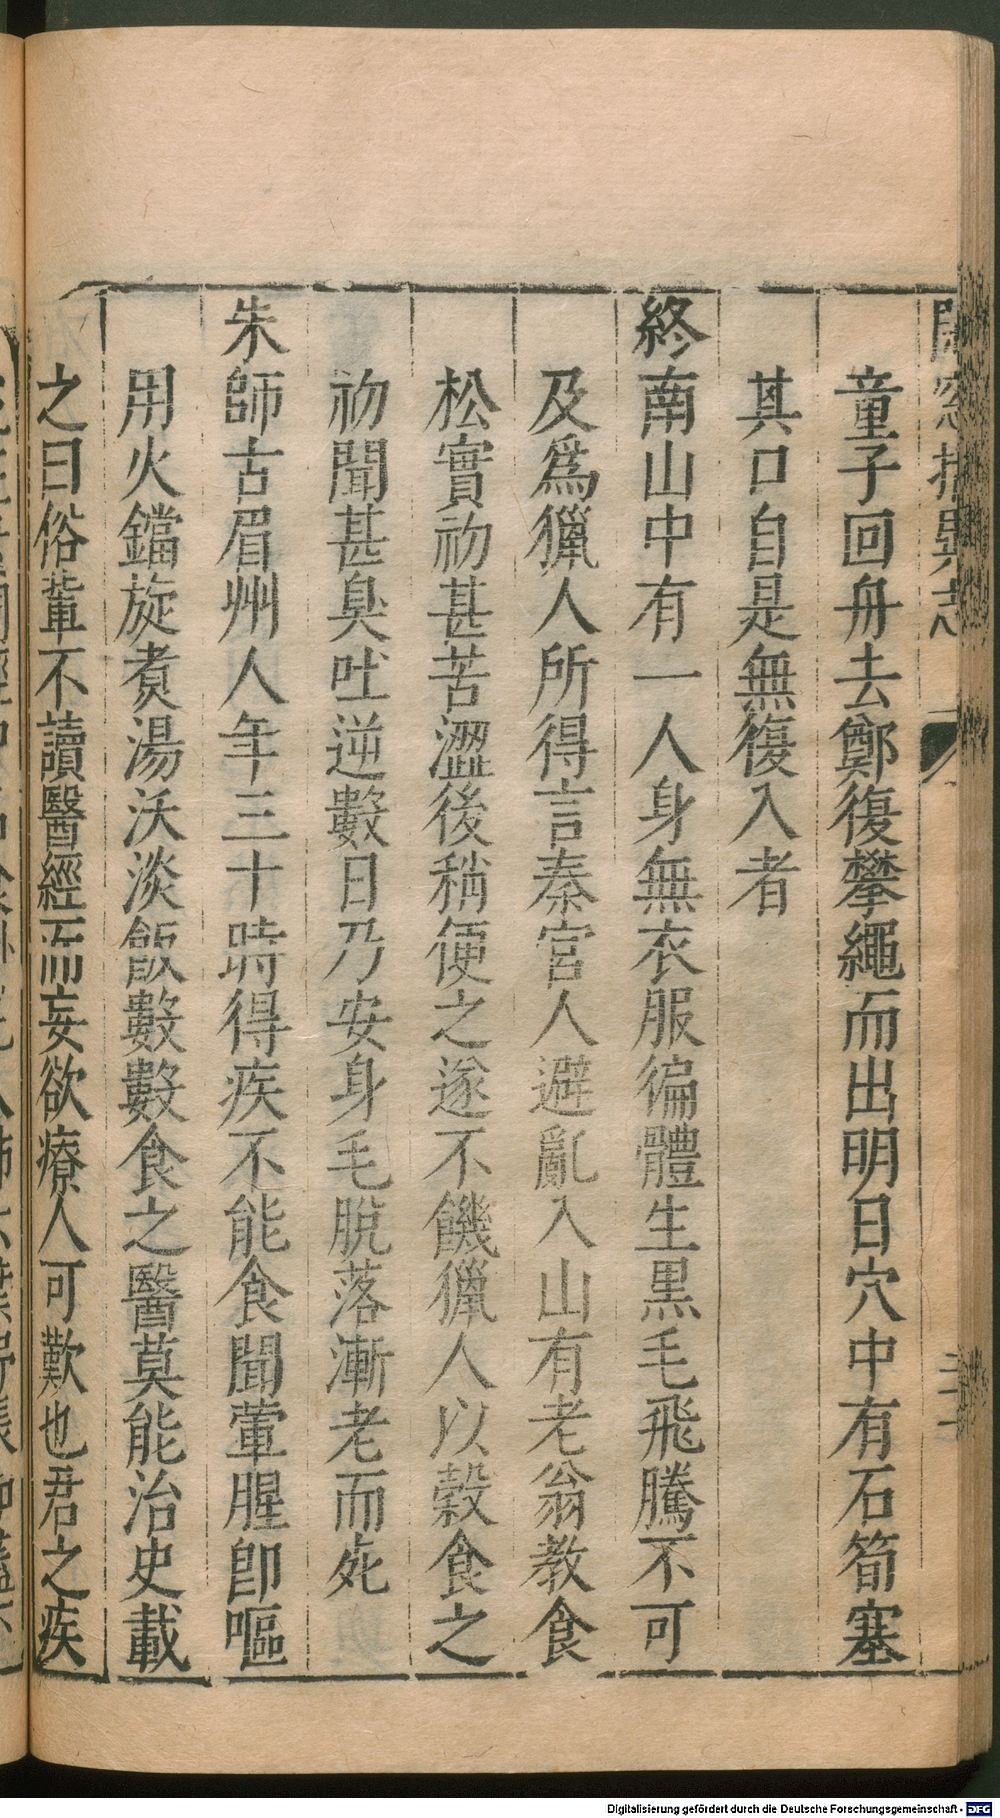 童子回舟去鄭復攀繩而出明日穴中有石筍塞
其口自是無復入者
終南山中有一人身無衣服徧體生黒毛飛騰不可
及爲獵人所得言秦宮人避亂入山有老翁教食
松實初甚苦澀後稍便之遂不饑獵人以穀食之
初聞甚臭吐逆數日乃安身毛脫落漸老而死
朱師古眉州人年三十時得疾不能食聞葷腥卽嘔
用火鐺旋煑湯沃淡飯數數食之醫莫能治史載
之曰俗輩不讀醫經而妄欲療人可歎也君之疾
Digitalisierung gefördert durch die Deutsche Forschungsgemeinschaft - DFG